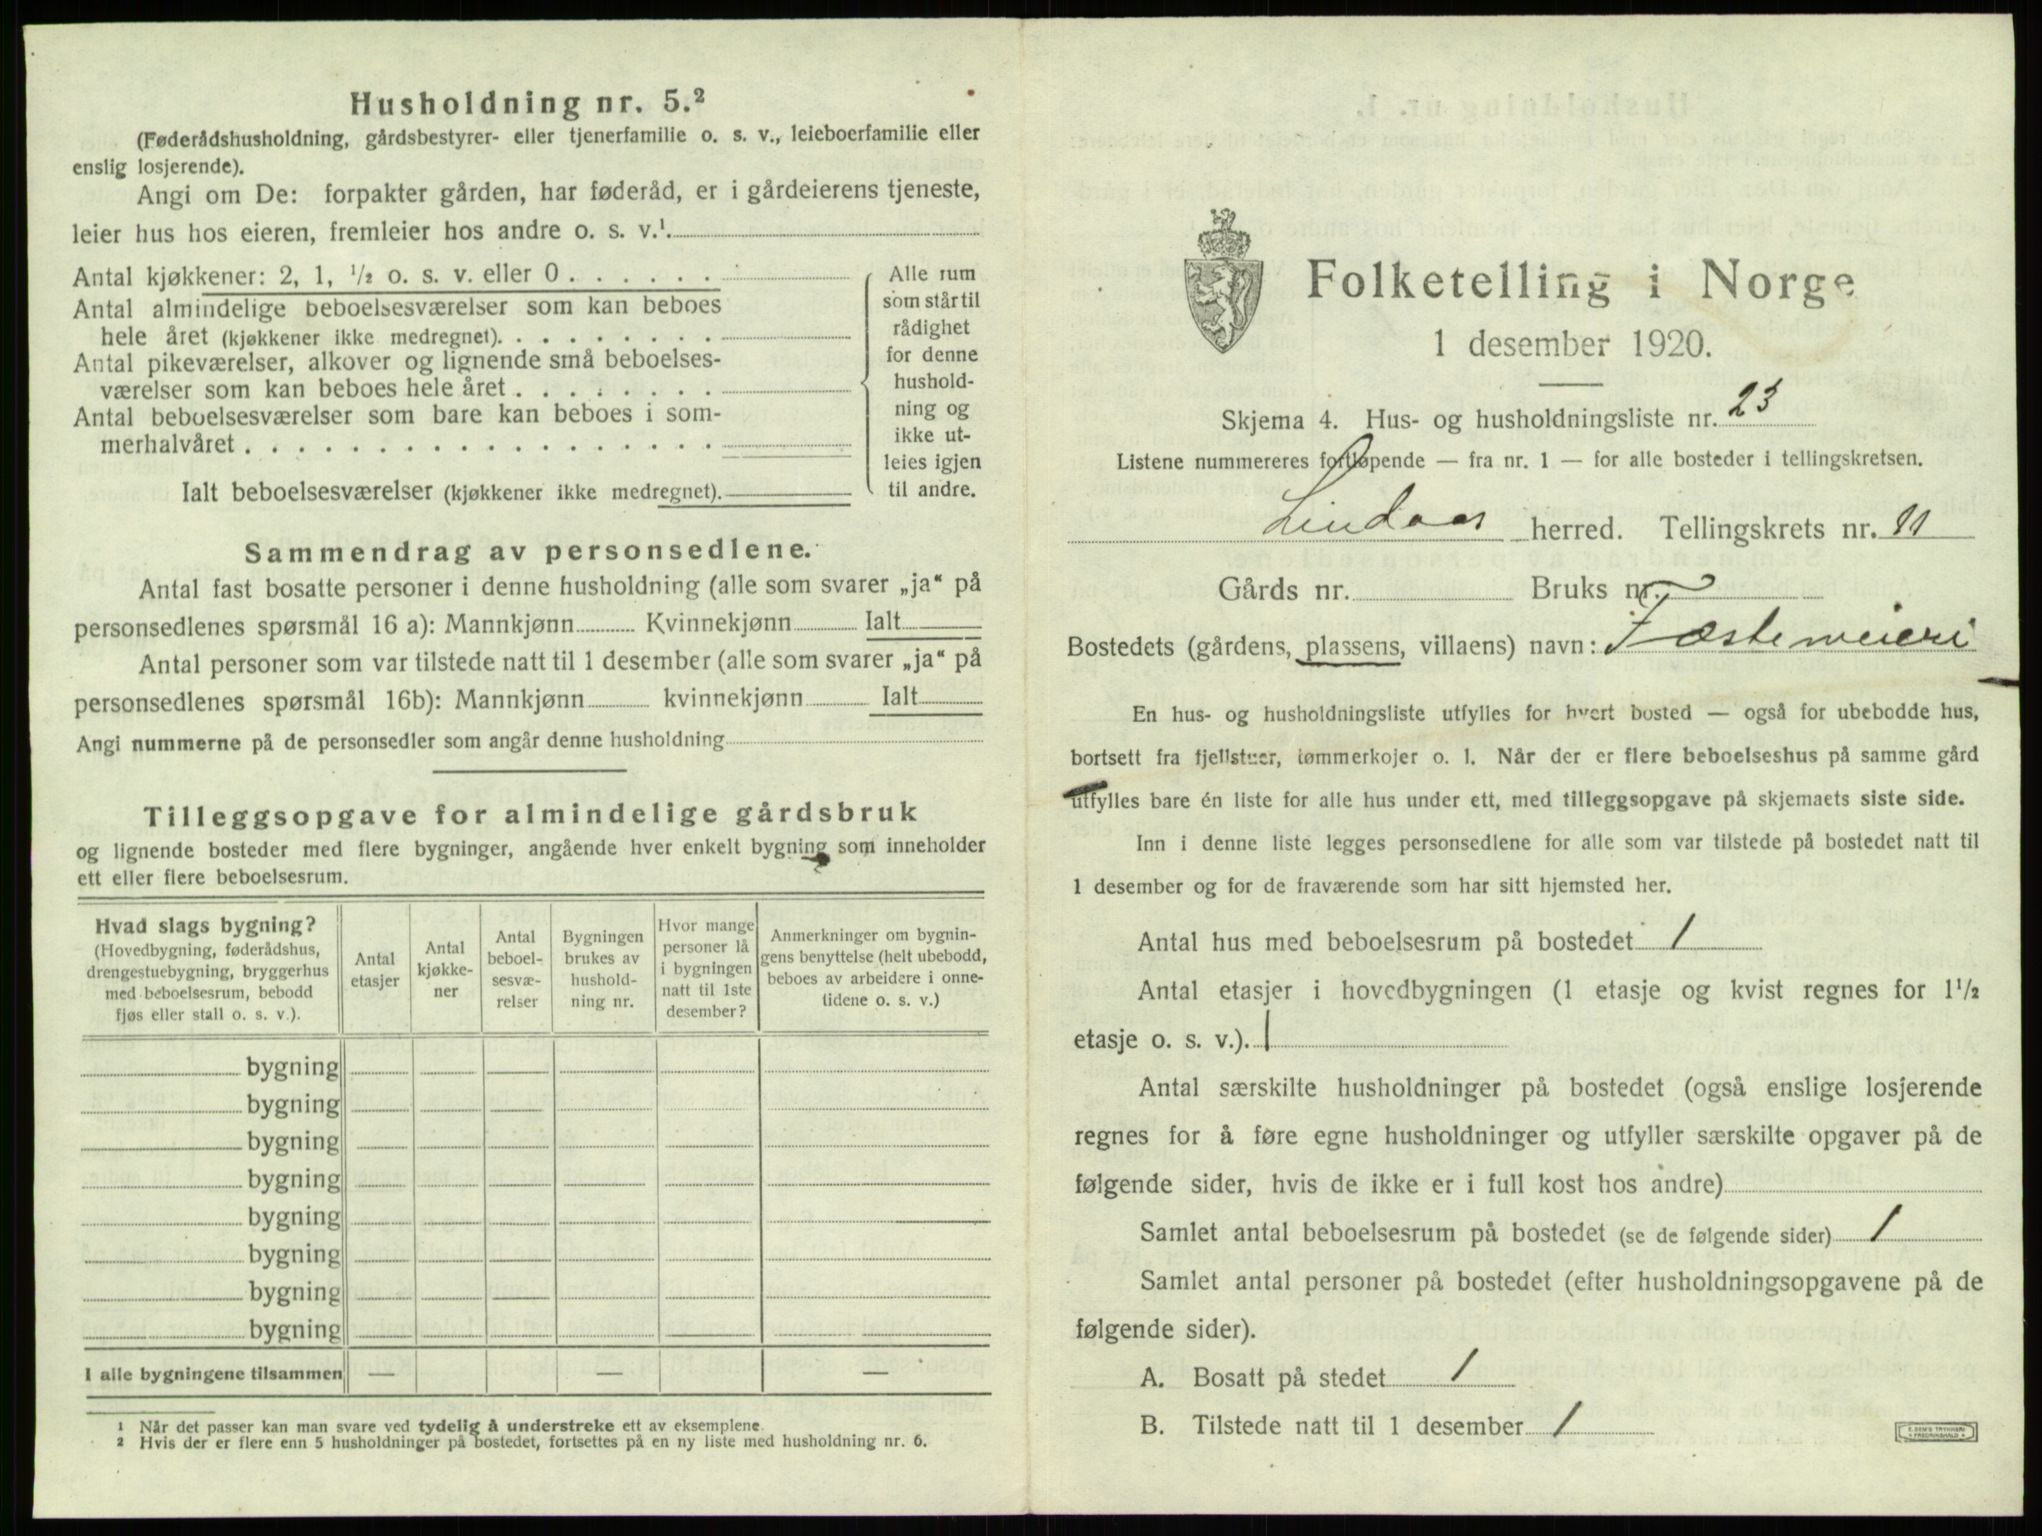 Husholdning nr. 5.²
(Føderådshusholdning, gårdsbestyrer- eller tjenerfamilie o. s. v., leieboerfamilie eller
enslig losjerende).
Angi om De: forpakter gården, har føderåd, er i gårdeierens tjeneste,
leier hus hos eieren, fremleier hos andre o. s. v.¹
Antal kjøkkener: 2, 1, ½ o. s. v. eller 0 . . . . . .
Antal almindelige beboelsesværelser som kan beboes
hele året (kjøkkener ikke medregnet). . . . . . . . .
Antal pikeværelser, alkover og lignende små beboelses-
værelser som kan beboes hele året . . . . . . . .
Antal beboelsesværelser som bare kan beboes i som-
merhalvåret . . . . . . . . . . . . . . . . . .
Alle rum
som står til
rådighet
for denne
hushold-
ning og
ikke ut-
leies igjen
til andre.
Ialt beboelsesværelser (kjøkkener ikke medregnet).
Sammendrag av personsedlene.
Antal fast bosatte personer i denne husholdning (alle som svarer „ja“ på
personsedlenes spørsmål 16 a): Mannkjønn Kvinnekjønn Ialt
Antal personer som var tilstede natt til 1 desember (alle som svarer „ja“ på
personsedlenes spørsmål 16b): Mannkjønn kvinnekjønn Ialt
Angi nummerne på de personsedler som angår denne husholdning
Tilleggsopgave for almindelige gårdsbruk
og lignende bosteder med flere bygninger, angående hver enkelt bygning som inneholder
ett eller flere beboelsesrum.
Hvad slags bygning?
(Hovedbygning, føderådshus,
drengestuebygning, bryggerhus
med beboelsesrum, bebodd
fjøs eller stall o. s. v.).
Antal
etasjer
Antal
kjøkke-
ner
Antal
beboel-
sesvæ-
relser
Bygningen
brukes av
hushold-
ning nr.
Hvor mange
personer lå
i bygningen
natt til 1ste
desember?
Anmerkninger om bygnin-
gens benyttelse (helt ubebodd,
beboes av arbeidere i onne-
tidene o. s. v.)
bygning
bygning
bygning
bygning
bygning
bygning
bygning
bygning
I alle bygningene tilsammen — — —
¹ Når det passer kan man svare ved tydelig å understreke ett av eksemplene.
² Hvis der er flere enn 5 husholdninger på bostedet, fortsettes på en ny liste med husholdning nr. 6.
Folketelling i Norge
1 desember 1920.
Skjema 4. Hus- og husholdningsliste nr. 23
Listene nummereres fortløpende — fra nr. 1 — for alle bosteder i tellingskretsen.
Lindaas herred. Tellingskrets nr. 11
Gårds nr. Bruks nr.
Bostedets (gårdens, plassens, villaens) navn: Fæstemeieri
En hus- og husholdningsliste utfylles for hvert bosted — også for ubebodde hus,
bortsett fra fjellstuer, tømmerkojer o. l. Når der er flere beboelseshus på samme gård
utfylles bare én liste for alle hus under ett, med tilleggsopgave på skjemaets siste side.
Inn i denne liste legges personsedlene for alle som var tilstede på bostedet natt til
1 desember og for de fraværende som har sitt hjemsted her.
Antal hus med beboelsesrum på bostedet 1
Antal etasjer i hovedbygningen (1 etasje og kvist regnes for 1½
etasje o. s. v.). 1
Antal særskilte husholdninger på bostedet (også enslige losjerende
regnes for å føre egne husholdninger og utfyller særskilte opgaver på de
følgende sider, hvis de ikke er i full kost hos andre)
Samlet antal beboelsesrum på bostedet (se de følgende sider) 1
Samlet antal personer på bostedet (efter husholdningsopgavene på de
følgende sider).
A. Bosatt på stedet 1
B. Tilstede natt til 1 desember 1